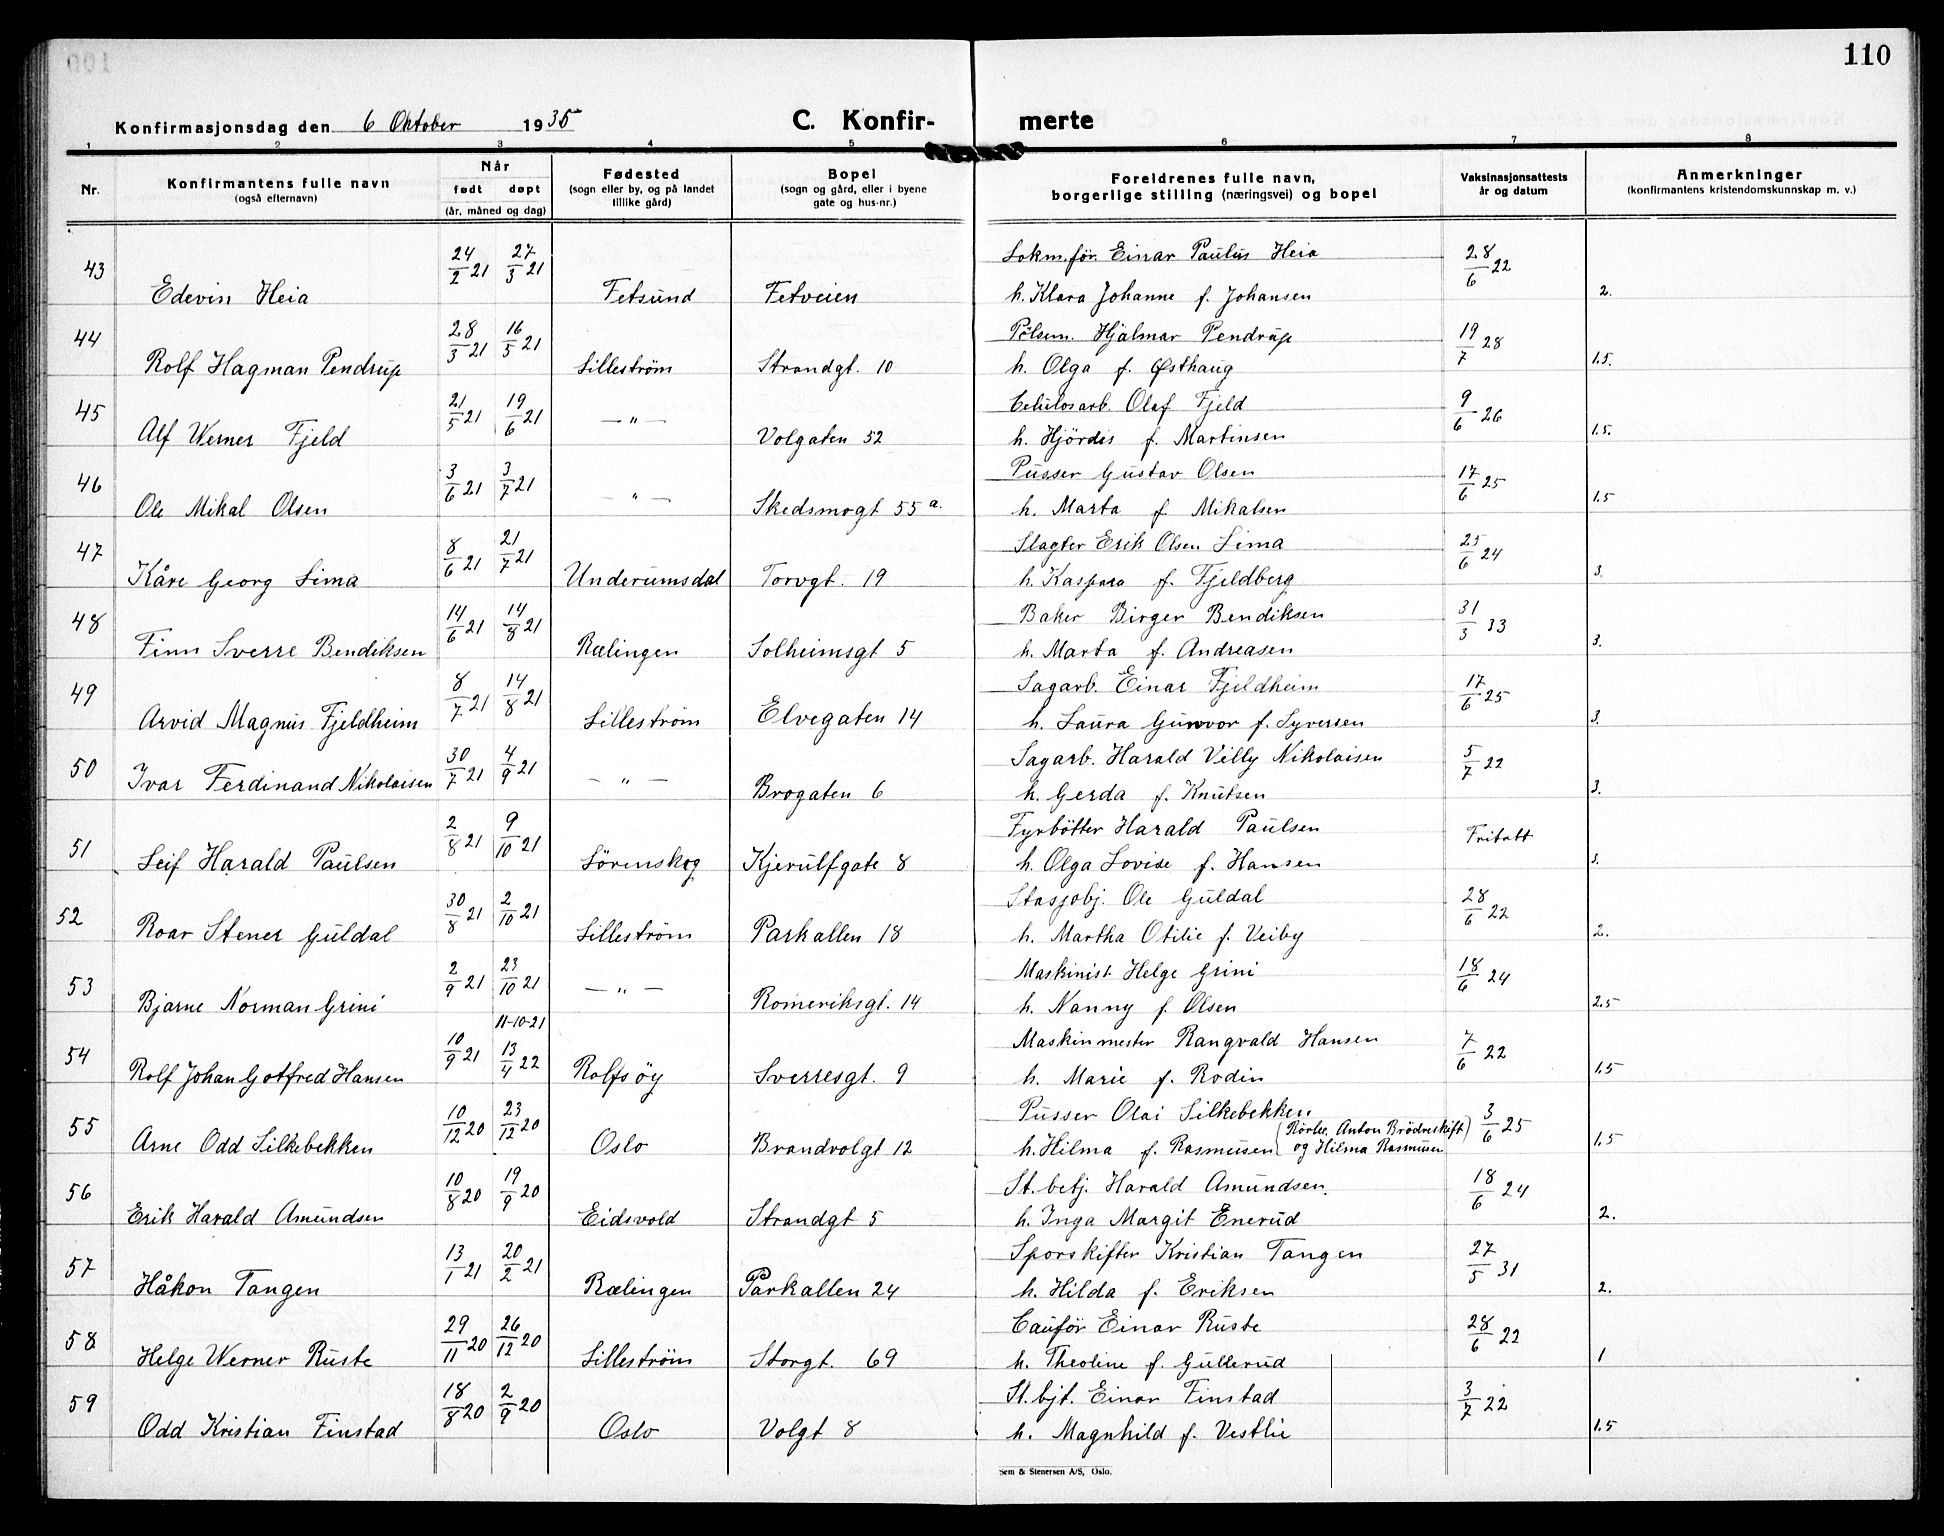 110
Konfirmasjonsdag den 6 Oktober 1935 C. Konfir- merte
1 2 3 4 5 6 7 8
Nr. Konfirmantens fulle navn (også efternavn) Når født døpt (år, måned og dag) Fødested (sogn eller by, og på landet tillike gård) Bopel (sogn og gård, eller i byene gate og hus-nr.) Foreldrenes fulle navn, borgerlige stilling (næringsvei) og bopel Vaksinasjonsattests år og datum Anmerkninger (konfirmantens kristendomskunnskap m. v.)
43 24/2 21 27/3 21 Lokm.för. Einar Paulus Heia 28/6 22
Edevin Heia Fetsund Fetveien h. Klara Johanne f. Johansen 2.
44 28/3 21 16/5 21 Pölsem. Hjalmar Pendrup 19/7 28
Rolf Hagman Pendrup Lilleström Strandgt. 10 h. Olga f. Østhaug 1.5.
45 21/5 21 19/6 21 Celulosarb. Olaf Fjeld 9/6 26
Alf Werner Fjeld — " — Volgaten 52 h. Hjördis f. Martinsen 1.5.
46 3/6 21 3/7 21 Pusser Gustav Olsen 17/6 25
Ole Mikal Olsen — " — Skedsmogt 55 a. h. Marta f. Mikalsen 1.5
47 8/6 21 21/7 21 Slagter Erik Olsen Lima 25/6 24
Kåre Georg Lima Underumsdal Torvgt. 19 h. Kaspara f. Fjeldberg 3.
48 14/6 21 14/8 21 Baker Birger Bendiksen 31/3 33
Finn Sverre Bendiksen Rælingen Solheimsgt 5 h. Marta f. Andreasen 3.
49 8/7 21 14/8 21 Sagarb. Einar Fjeldheim 17/6 25
Arvid Magnus Fjeldheim Lilleström Elvegaten 14 h. Laura Gunvor f. Syversen 3.
50 30/7 21 4/9 21 Sagarb. Harald Villy Nikolaisen 5/7 22
Ivar Ferdinand Nikolaisen — " — Brogaten 6 h. Gerda f. Knutsen 3.
51 2/8 21 9/10 21 Fyrbötter Harald Paulsen Fritatt
Leif Harald Paulsen Lörenskog Kjerulfgate 8 h. Olga Lovise f. Hansen 3.
52 30/8 21 2/10 21 Stasjobj. Ole Guldal 28/6 22
Roar Stener Guldal Lilleström Parkallen 18 h. Martha Otilie f. Veiby 2.
53 2/9 21 23/10 21 Maskinist Helge Grini 18/6 24
Bjarne Norman Grini — " — Romeriksgt. 14 h. Nanny f. Olsen 2.5
11-10-21
54 10/9 21 13/4 22 Maskinmester Rangvald Hansen 7/6 22
Rolf Johan Gotfred Hansen Rolfsöy Sverresgt. 9 h. Marie f. Rodin 1.5
55 10/12 20 23/12 20 Pusser Olai Silkebekken 3/6 25
Arne Odd Silkebekken Oslo Brandvolgt 12 h. Hilma f. Rasmusen (Anton Brödreskift og Hilma Rasmusen) 1.5
56 10/8 20 19/9 20 St. betj. Harald Amundsen. 18/6 24
Erik Harald Amundsen Eidsvold Strandgt 5 h. Inga Margit Enerud 2.
57 13/1 21 20/2 21 Sporskifter Kristian Tangen 27/5 31
Håkon Tangen Rælingen Parkallen 24 h. Hilda f. Eriksen 2.
58 29/11 20 26/12 20 Einar Ruste 28/6 22
Helge Werner Ruste Lilleström Storgt. 69 h. Theoline f. Gullerud 1
59 18/8 20 2/9 20 St. bjt. Einar Finstad 3/7 22
Odd Kristian Finstad Oslo Volgt 8 h. Magnhild f. Vestlie 1.5
Sem & Stenersen A/S, Oslo.